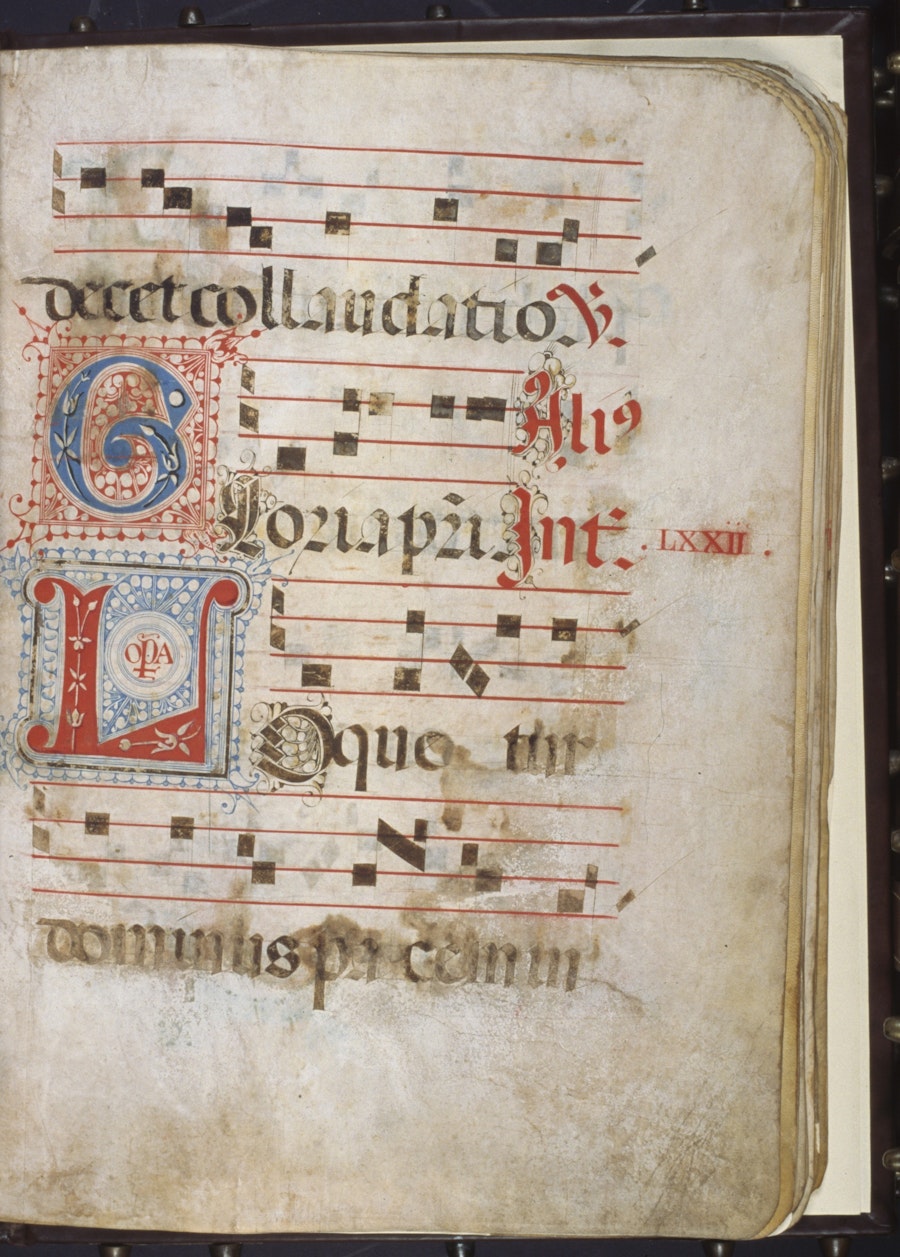 decet collaudatio ℣.
Alius
Gloria pr̃i. Int̃.
. LXXII .
OPA
Loquetur
dominus pacem in